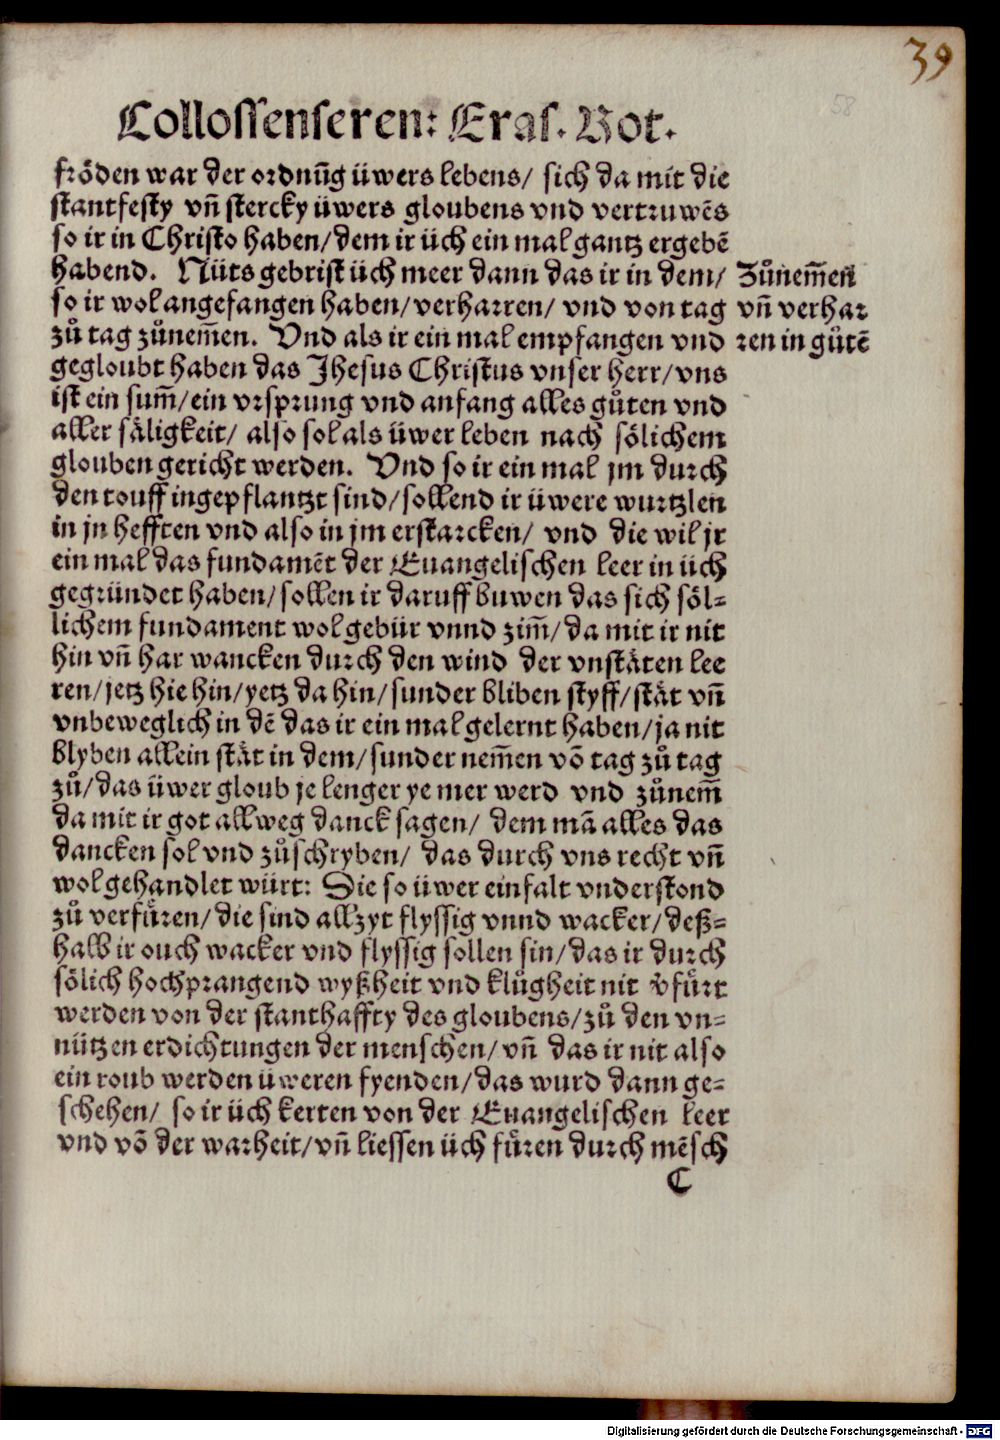 39
58
Collossenseren: Eras. Rot.
fröden war der ordnūg üwers lebens/ sich da mit die
stantfesty vn̄ stercky üwers gloubens vnd vertruwēs
so ir in Christo haben/dem ir üch ein mal gantz ergebē
habend. Nüts gebrist üch meer dann das ir in dem/
so ir wol angefangen haben/verharren/ vnd von tag
zů tag zůnem̄en. Vnd als ir ein mal empfangen vnd
gegloubt haben das Jhesus Christus vnser herr/vns
ist ein sum̄/ein vrsprung vnd anfang alles gůten vnd
aller säligkeit/ also sol als üwer leben nach sölichem
glouben gericht werden. Vnd so ir ein mal jm durch
den touff ingepflantzt sind/sollend ir üwere wurtzlen
in jn hefften vnd also in jm erstarcken/ vnd die wil jr
ein mal das fundamēt der Euangelischen leer in üch
gegründet haben/sollen ir daruff buwen das sich söl-
lichem fundament wol gebür vnnd zim̄/da mit ir nit
hin vn̄ har wancken durch den wind der vnstäten lee
ren/jetz hie hin/yetz da hin/sunder bliben styff/stät vn̄
vnbeweglich in dē das ir ein mal gelernt haben/ja nit
blyben allein stät in dem/sunder nem̄en vō tag zů tag
zů/das üwer gloub je lenger ye mer werd vnd zůnem̄
da mit ir got allweg danck sagen/ dem mā alles das
dancken sol vnd zůschryben/ das durch vns recht vn̄
wol gehandlet würt: Die so üwer einfalt vnderstond
zů verfüren/die sind allzyt flyssig vnnd wacker/deß-
halb ir ouch wacker vnd flyssig sollen sin/das ir durch
sölich hochprangend wyßheit vnd klůgheit nit v̄fürt
werden von der stanthaffty des gloubens/zů den vn-
nützen erdichtungen der menschen/vn̄ das ir nit also
ein roub werden üweren fyenden/das wurd dann ge-
schehen/ so ir üch kerten von der Euangelischen leer
vnd vō der warheit/vn̄ liessen üch füren durch mēsch
C
Zůnem̄en
vn̄ verhar
ren in gůtē
Digitalisierung gefördert durch die Deutsche Forschungsgemeinschaft - DFG